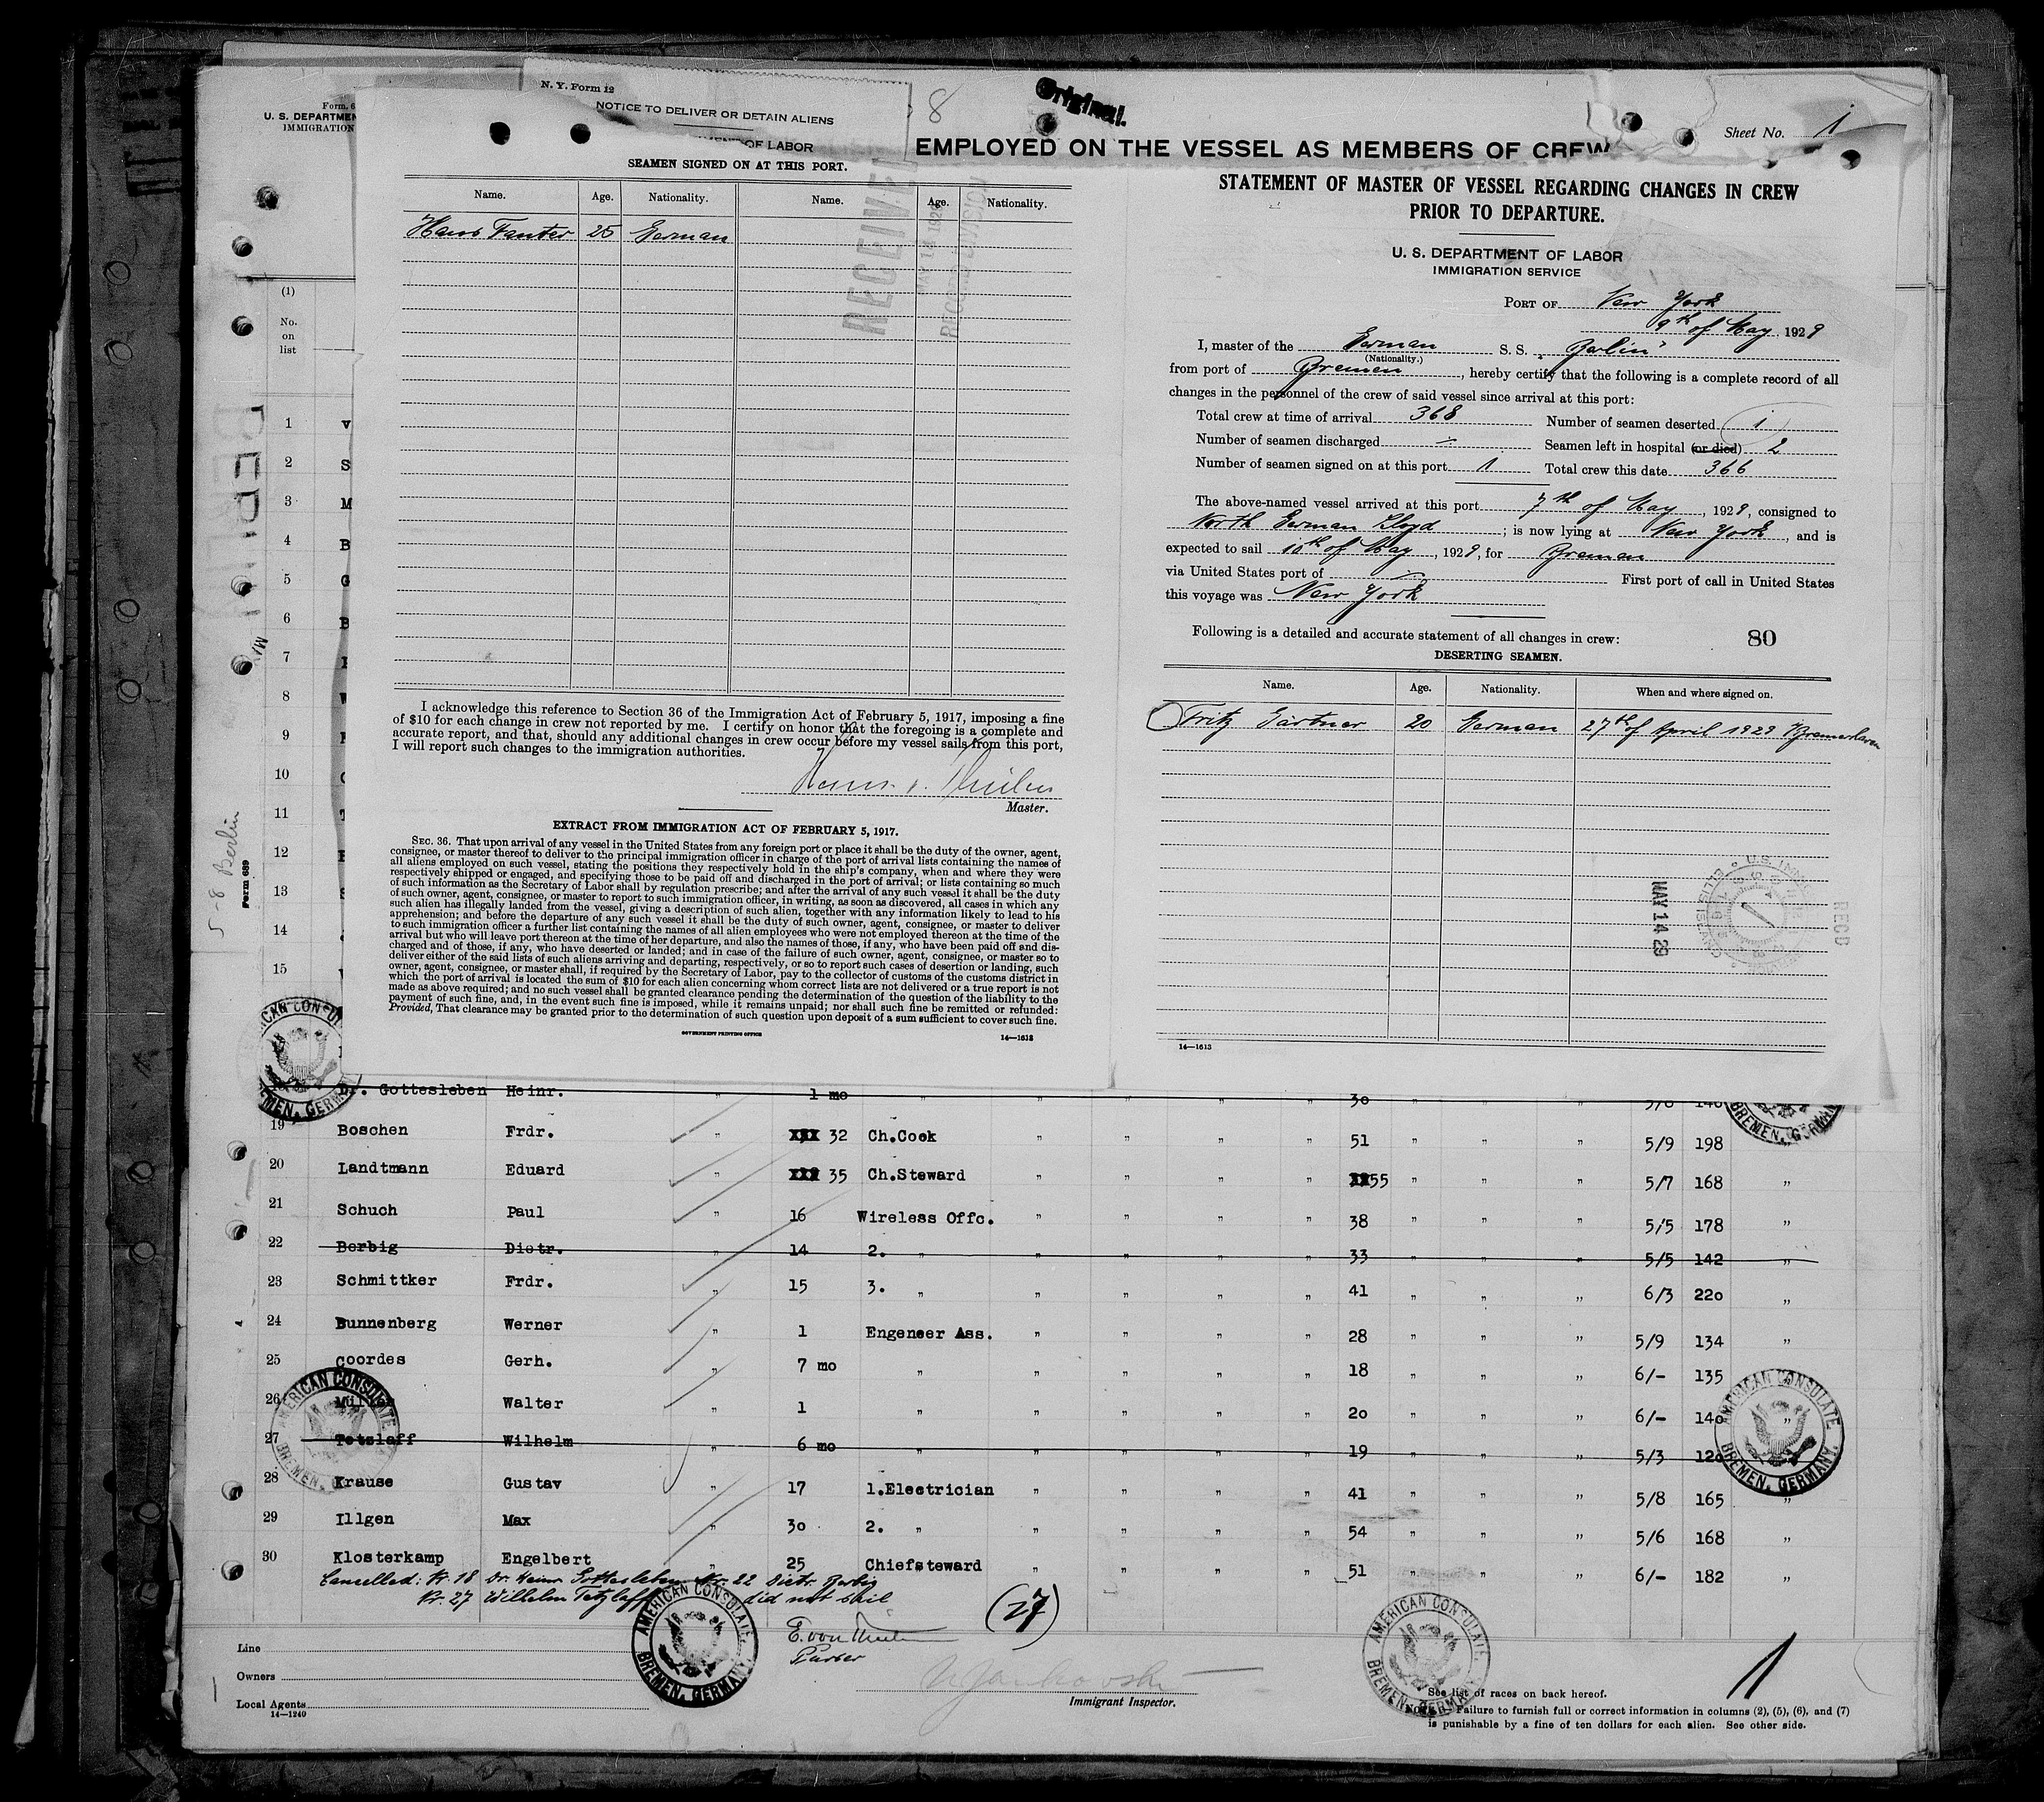 Form. 6
U. S. DEPARTMEN
IMMIGRATION
N. Y. Form 12
NOTICE TO DELIVER OR DETAIN ALIENS
OF LABOR
8
Original.
EMPLOYED ON THE VESSEL AS MEMBERS OF CREW
Sheet No. 1
SEAMEN SIGNED ON AT THIS PORT.
Name. Age. Nationality. Name. Age. Nationality.
Hans Fanter 25 German
RECEIVED
I acknowledge this reference to Section 36 of the Immigration Act of February 5, 1917, imposing a fine
of $10 for each change in crew not reported by me. I certify on honor that the foregoing is a complete and
accurate report, and that, should any additional changes in crew occur before my vessel sails from this port,
I will report such changes to the immigration authorities.
Master.
EXTRACT FROM IMMIGRATION ACT OF FEBRUARY 5, 1917.
SEC. 36. That upon arrival of any vessel in the United States from any foreign port or place it shall be the duty of the owner, agent,
consignee, or master thereof to deliver to the principal immigration officer in charge of the port of arrival lists containing the names of
all aliens employed on such vessel, stating the positions they respectively hold in the ship's company, when and where they were
respectively shipped or engaged, and specifying those to be paid off and discharged in the port of arrival; or lists containing so much
of such information as the Secretary of Labor shall by regulation prescribe; and after the arrival of any such vessel it shall be the duty
of such owner, agent, consignee, or master to report to such immigration officer, in writing, as soon as discovered, all cases in which any
such alien has illegally landed from the vessel, giving a description of such alien, together with any information likely to lead to his
apprehension; and before the departure of any such vessel it shall be the duty of such owner, agent, consignee, or master to deliver
to such immigration officer a further list containing the names of all alien employees who were not employed thereon at the time of the
arrival but who will leave port thereon at the time of her departure, and also the names of those, if any, who have been paid off and dis-
charged and of those, if any, who have deserted or landed; and in case of the failure of such owner, agent, consignee, or master so to
deliver either of the said lists of such aliens arriving and departing, respectively, or so to report such cases of desertion or landing, such
owner, agent, consignee, or master shall, if required by the Secretary of Labor, pay to the collector of customs of the customs district in
which the port of arrival is located the sum of $10 for each alien concerning whom correct lists are not delivered or a true report is not
made as above required; and no such vessel shall be granted clearance pending the determination of the question of the liability to the
payment of such fine, and, in the event such fine is imposed, while it remains unpaid; nor shall such fine be remitted or refunded:
Provided, That clearance may be granted prior to the determination of such question upon deposit of a sum sufficient to cover such fine.
GOVERNMENT PRINTING OFFICE
14—1613
STATEMENT OF MASTER OF VESSEL REGARDING CHANGES IN CREW
PRIOR TO DEPARTURE.
U. S. DEPARTMENT OF LABOR
IMMIGRATION SERVICE
PORT OF New York
9th of May, 1929
I, master of the German S. S. "Berlin"
(Nationality.)
from port of Bremen, hereby certify that the following is a complete record of all
changes in the personnel of the crew of said vessel since arrival at this port:
Total crew at time of arrival 368 Number of seamen deserted 1
Number of seamen discharged — Seamen left in hospital (or died) 2
Number of seamen signed on at this port 1 Total crew this date 366
The above-named vessel arrived at this port 7th of May, 1929, consigned to
North German Lloyd; is now lying at New York, and is
expected to sail 10th of May, 1929, for Bremen
via United States port of — First port of call in United States
this voyage was New York
Following is a detailed and accurate statement of all changes in crew: 80
DESERTING SEAMEN.
Name. Age. Nationality. When and where signed on.
Fritz Gärtner 20 German 27th of April 1929 Bremerhaven
MAY 14 29
RECD
14—1613
(1)
No.
on
list
1 V
2 S
3 M
4 B
5 G
6 B
7
8
9
10
11
12
13
14
15
5-8 Berlin
Form 689
Dr. Gottesleben Heinr. " 1 mo " " " " " 30 " " " 5/6 140
19 Boschen Frdr. " XXX 32 Ch.Cook " " " " 51 " " " 5/9 198 "
20 Landtmann Eduard " XXX 35 Ch.Steward " " " " XX55 " " " 5/7 168 "
21 Schuch Paul " 16 Wireless Offc. " " " " 38 " " " 5/5 178 "
22 Berbig Dietr. " 14 2. " " " " " 33 " " " 5/5 142 "
23 Schmittker Frdr. " 15 3. " " " " " 41 " " " 6/3 220 "
24 Bunnenberg Werner " 1 Engeneer Ass. " " " " 28 " " " 5/9 134 "
25 Coordes Gerh. " 7 mo " " " " " 18 " " " 6/- 135 "
26 Walter " 1 " " " " " 20 " " " 6/- 140 "
27 Tetzlaff Wilhelm " 6 mo " " " " " 19 " " " 5/3 120
28 Krause Gustav " 17 1.Electrician " " " " 41 " " " 5/8 165 "
29 Illgen Max " 30 2. " " " " " 54 " " " 5/6 168 "
30 Klosterkamp Engelbert " 25 Chiefsteward " " " " 51 " " " 6/- 182 "
Cancelled: Nr. 18 Dr. Heinr. Gottesleben Nr. 22 Dietr. Berbig
Nr. 27 Wilhelm Tetzlaff did not sail
(27)
Purser
AMERICAN CONSULATE
BREMEN, GERMANY.
AMERICAN CONSULATE
BREMEN, GERMANY.
AMERICAN CONSULATE
BREMEN, GERMANY.
AMERICAN CONSULATE
BREMEN, GERMANY.
Line
Owners
Local Agents
14—1240
Immigrant Inspector.
1
See list of races on back hereof.
Failure to furnish full or correct information in columns (2), (5), (6), and (7)
is punishable by a fine of ten dollars for each alien. See other side.